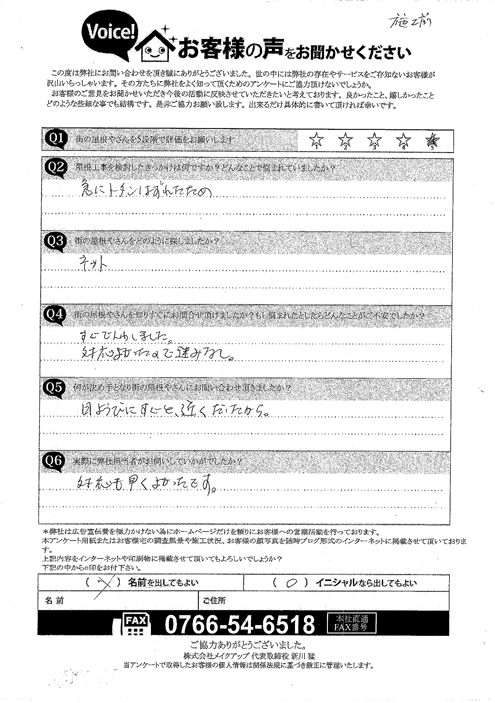 施工前
Voice!
お客様の声をお聞かせください
この度は弊社にお問い合わせを頂き誠にありがとうございました。世の中には弊社の存在やサービスをご存知ないお客様が
沢山いらっしゃいます。その方たちに弊社をよく知って頂くためのアンケートにご協力頂けないでしょうか。
お客様のご意見をお聞かせいただき今後の活動に反映させていただきたいと考えております。良かったこと、嬉しかったこと
どのような些細な事でも結構です。是非ご協力お願い致します。出来るだけ具体的に書いて頂ければ幸いです。
Q1 街の屋根やさんを5段階で評価をお願いします
Q2 屋根工事を検討したきっかけは何ですか?どんなことで悩まれていましたか?
急にトタンはずれたため
Q3 街の屋根やさんをどのように探しましたか?
ネット
Q4 街の屋根やさんを知りすぐにお問合せ頂けますか?もし悩まれたとしたらどんなことがご不安でしたか?
すぐでんわしました。
対応よかったので迷いなし。
Q5 何が決め手となり街の屋根やさんにお問い合わせ頂きましたか?
日ようびにすぐと、近くだたから。
Q6 実際に弊社担当者がお伺いしていかがでしたか?
対応も早くよかったです。
*弊社は広告宣伝費を極力かけない為にホームページだけを頼りにお客様への営業活動を行っております。
本アンケート用紙またはお客様宅の調査風景や施工状況、お客様の顔写真を随時ブログ形式のインターネットに掲載させて頂いておりま
す。
上記内容をインターネットや印刷物に掲載させて頂いてもよろしいでしょうか?
下記の中から○印をお付下さい。
( ) 名前を出してもよい ( ○ ) イニシャルなら出してもよい
名前 ご住所
FAX 0766-54-6518 本社直通 FAX番号
ご協力ありがとうございました。
株式会社メイクアップ 代表取締役 新川 猛
当アンケートで取得したお客様の個人情報は関係法規に基づき厳正に管理いたします。